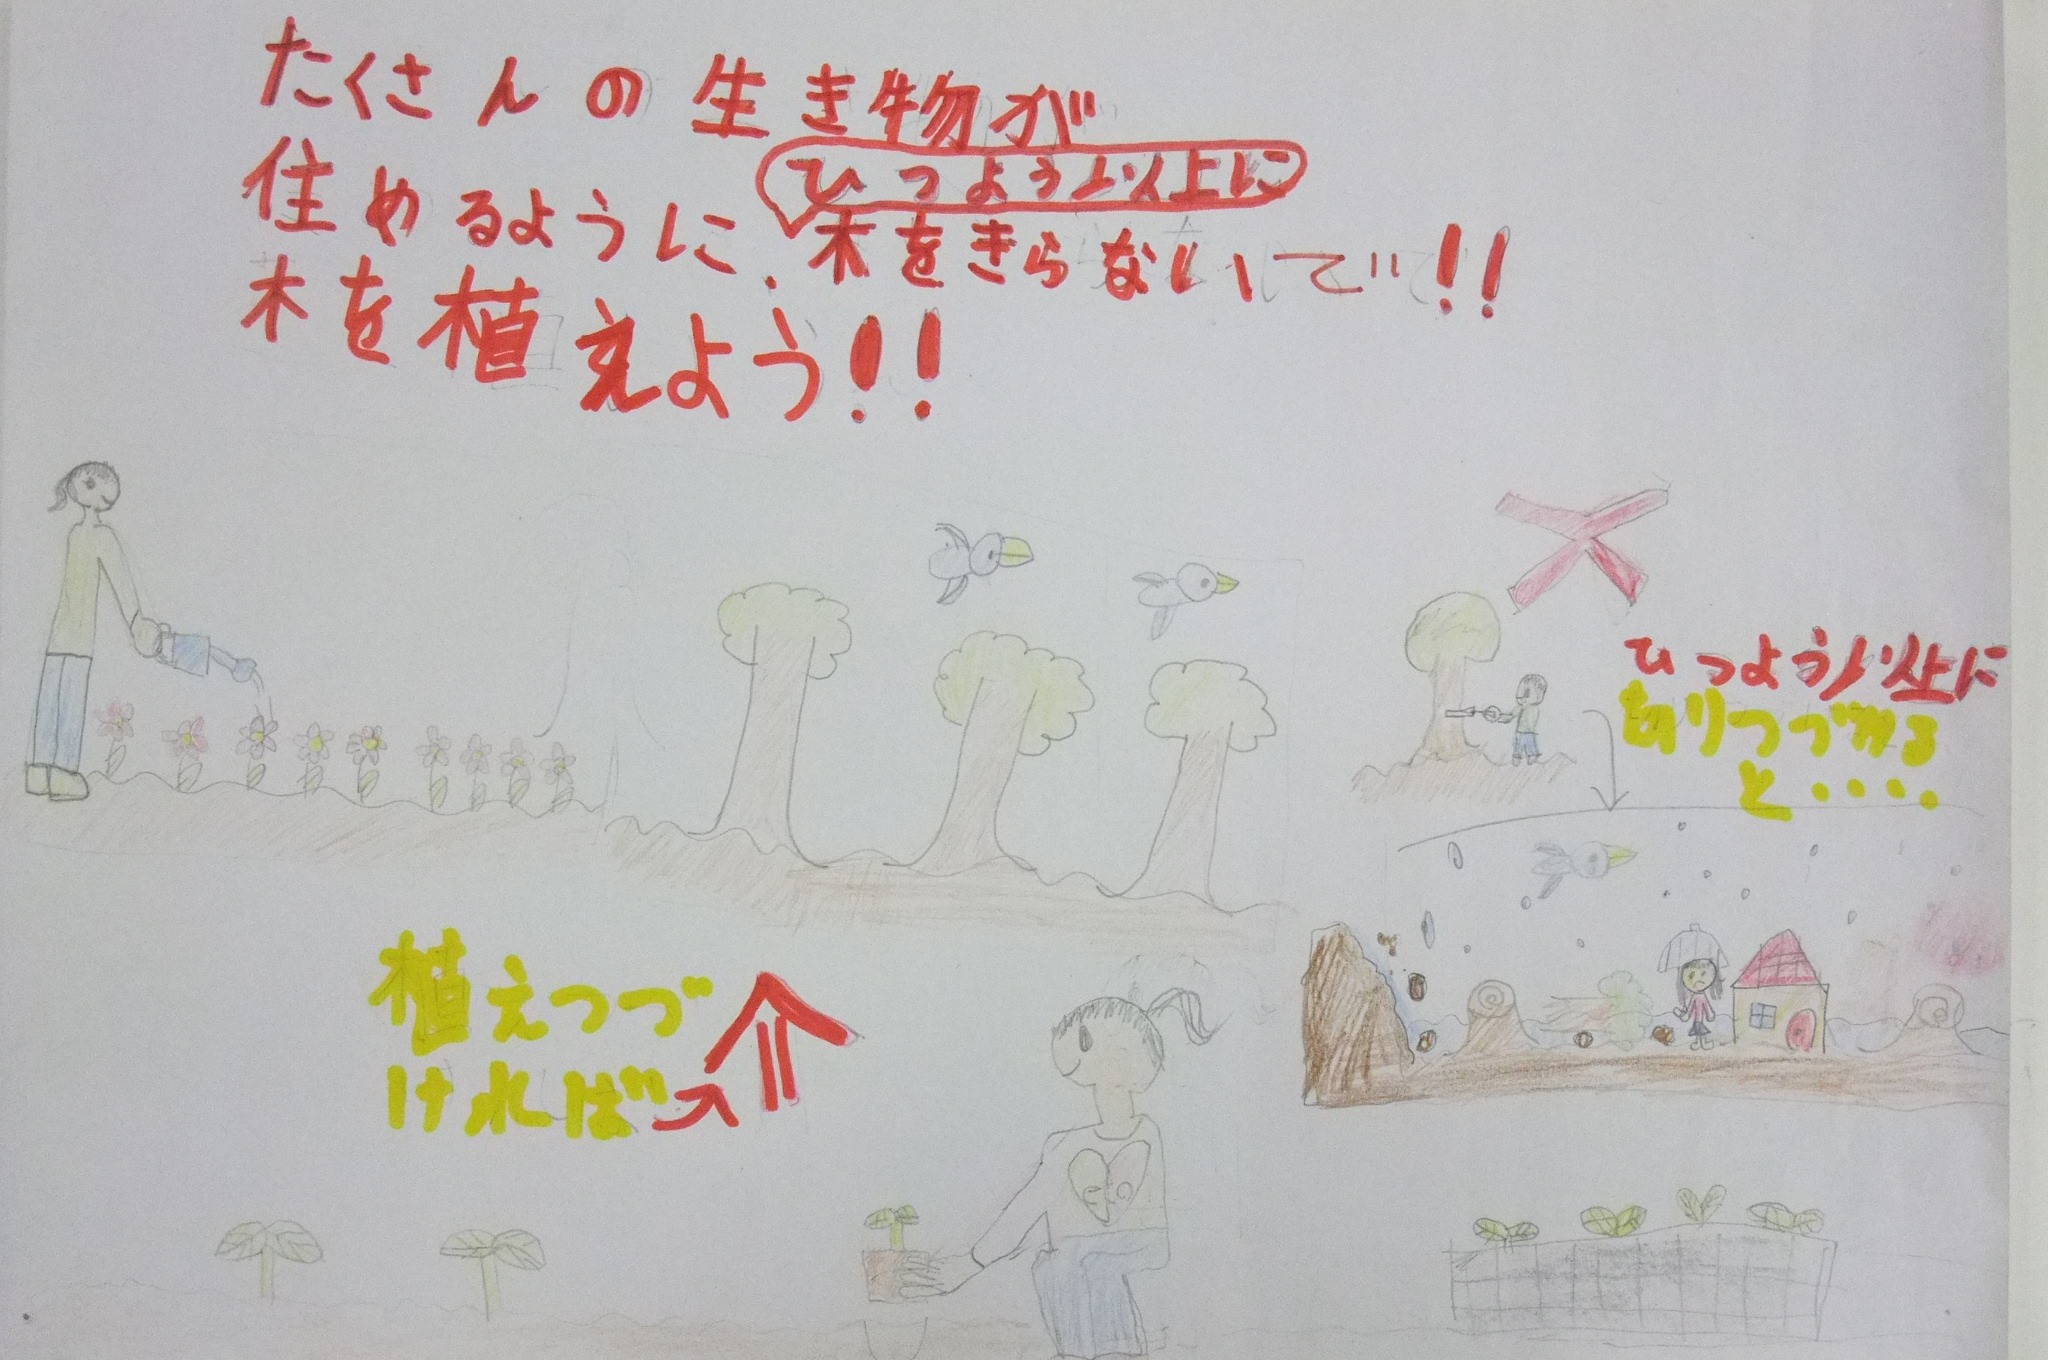 たくさんの生き物が
ひつよう以上に
住めるように、木をきらないで!!
木を植えよう!!
ひつよう以上に
切りつづける
と・・・・
植えつづ
ければ